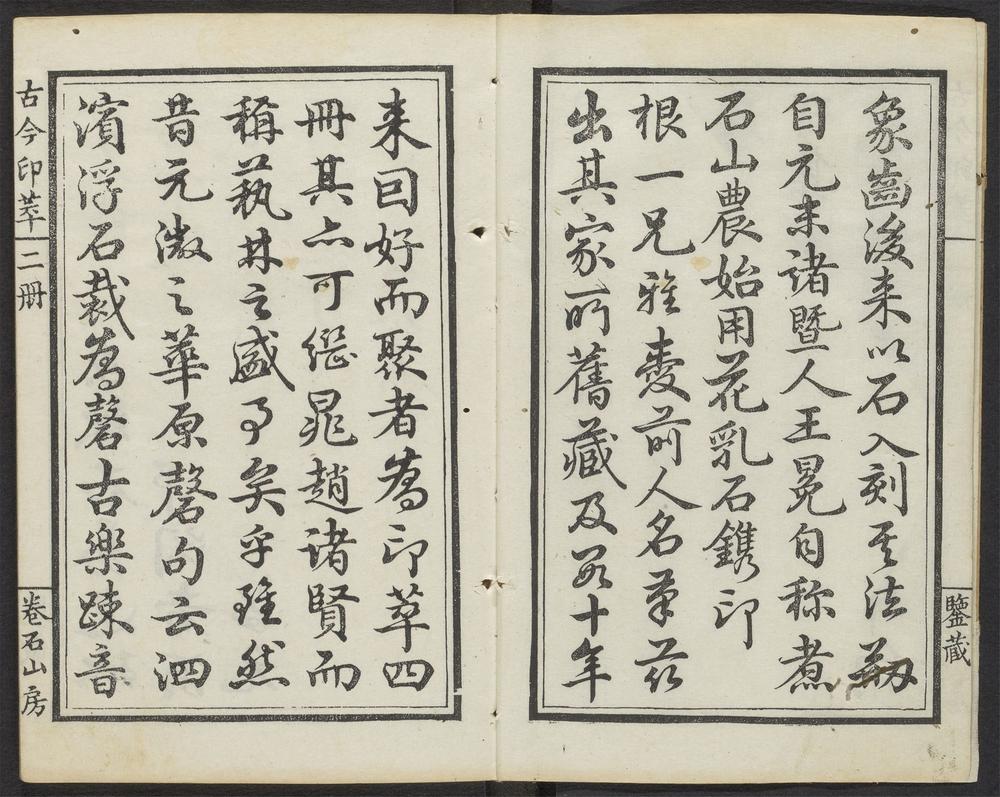 象齒後来以石入刻其法剏
自元末諸暨人王冕自称煮
石山農始用花乳石鐫印
根一兄雅愛前人名筆茲
出其家所舊藏及数十年
来回好而聚者為印萃四
冊其亦可繼晁趙諸賢而
稱藝林之盛事矣乎雖然
昔元微之華原磬句云泗
濱浮石裁為磬古樂疎音
鑒藏
古今印萃
二册
卷石山房